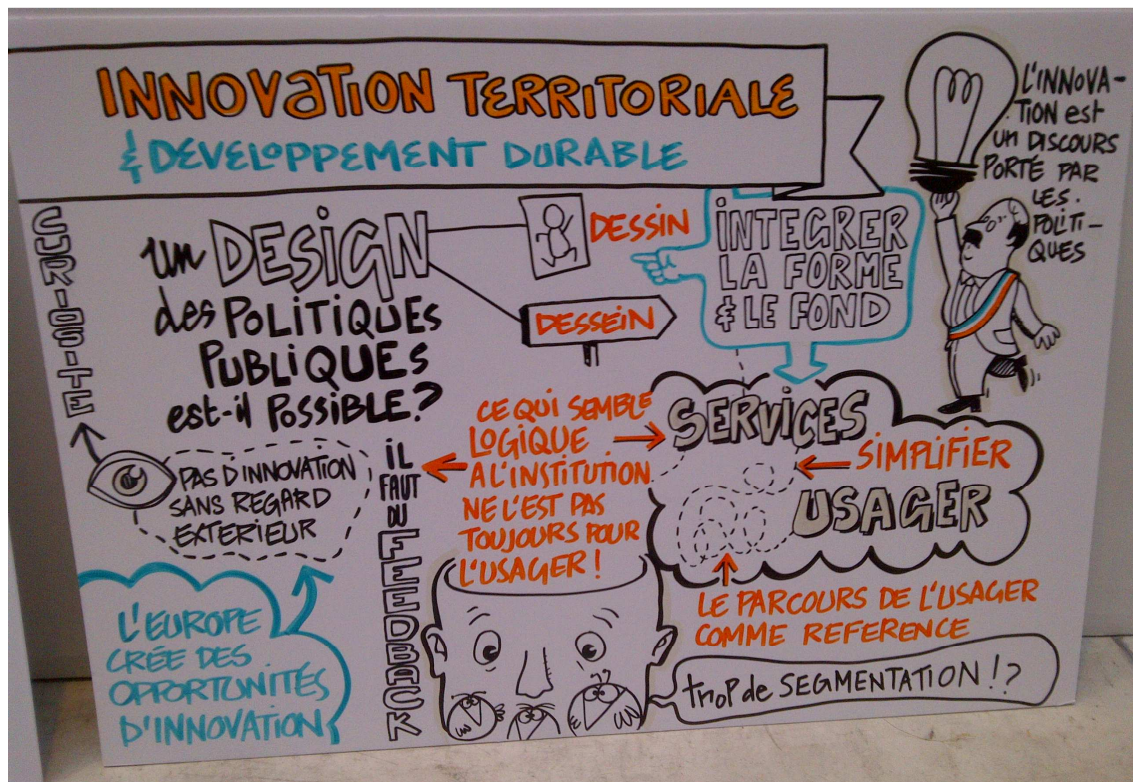 INNOVATION TERRITORIALE
& DEVELOPPEMENT DURABLE
L'INNOVA-
TION est
un DISCOURS
PORTÉ PAR
LES
POLITI-
QUES
CURIOSITE
un DESIGN
des POLITIQUES
PUBLIQUES
est-il POSSIBLE?
DESSIN
DESSEIN
INTEGRER
LA FORME
& LE FOND
PAS D'INNOVATION
SANS REGARD
EXTERIEUR
L'EUROPE
CRÉE DES
OPPORTUNITÉS
D'INNOVATION
iL
FAUT
DU
FEEDBACK
CE QUI SEMBLE
LOGIQUE
A L'INSTITUTION
NE L'EST PAS
TOUJOURS POUR
L'USAGER !
SERVICES
SIMPLIFIER
USAGER
LE PARCOURS DE L'USAGER
COMME REFERENCE
trop de SEGMENTATION !?